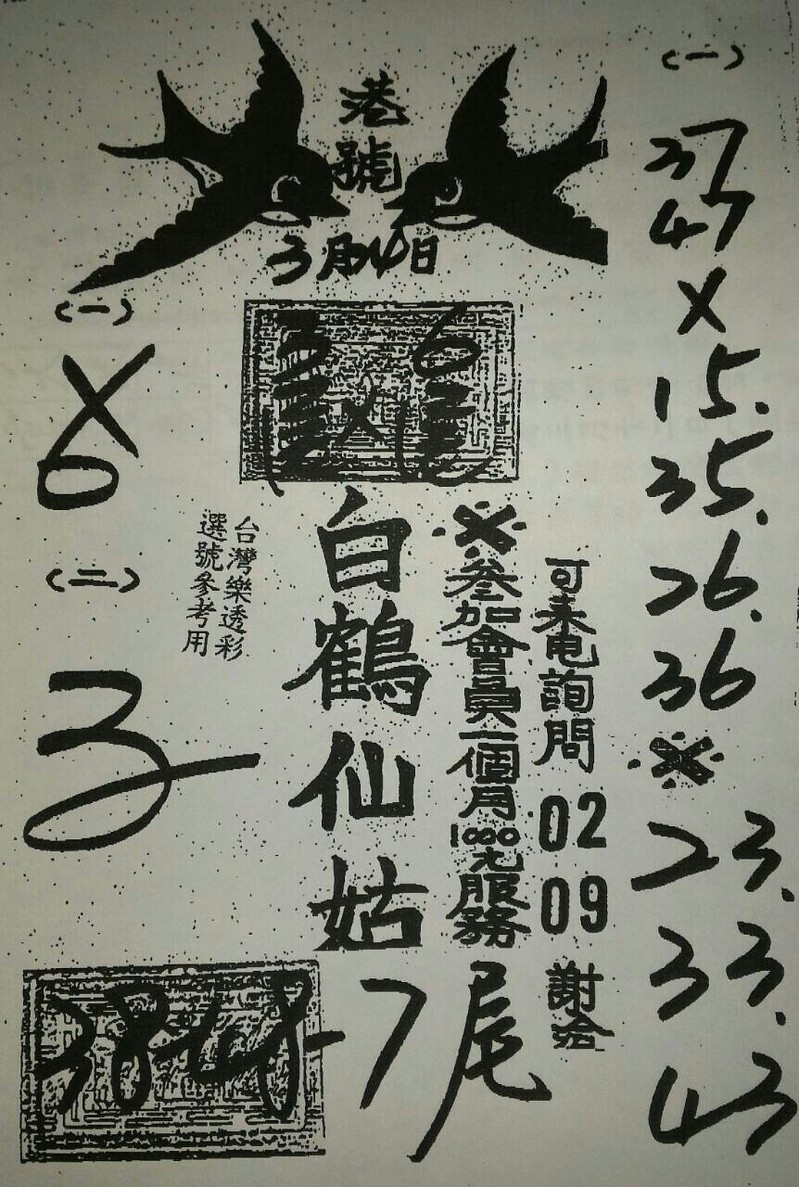 港號
3月14日
(一)
37
47
X
15.
35.
26.
36
※
23.
33.
43
(一)
X
0
(二)
3
台灣樂透彩
選號參考用
白鶴仙姑
※參加會員一個月1000元服務
可來電詢問 02 09 謝洽
38-48-7尾